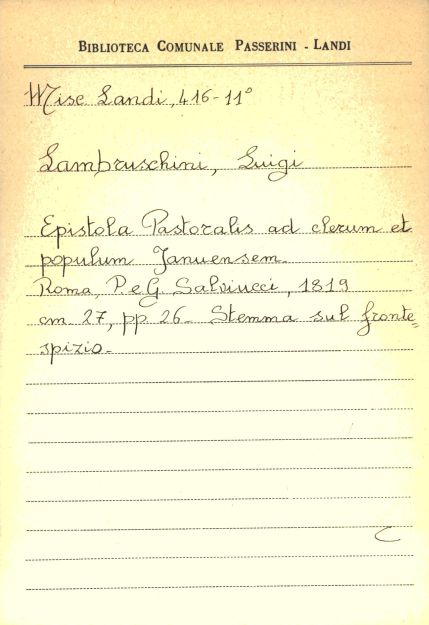 BIBLIOTECA COMUNALE PASSERINI - LANDI
Misc Landi, 416-11°
Lambruschini, Luigi
Epistola Pastoralis ad clerum et
populum Januensem.
Roma, P. e G. Salviucci, 1819
cm 27, pp. 26. Stemma sul fronte=
spizio.
C